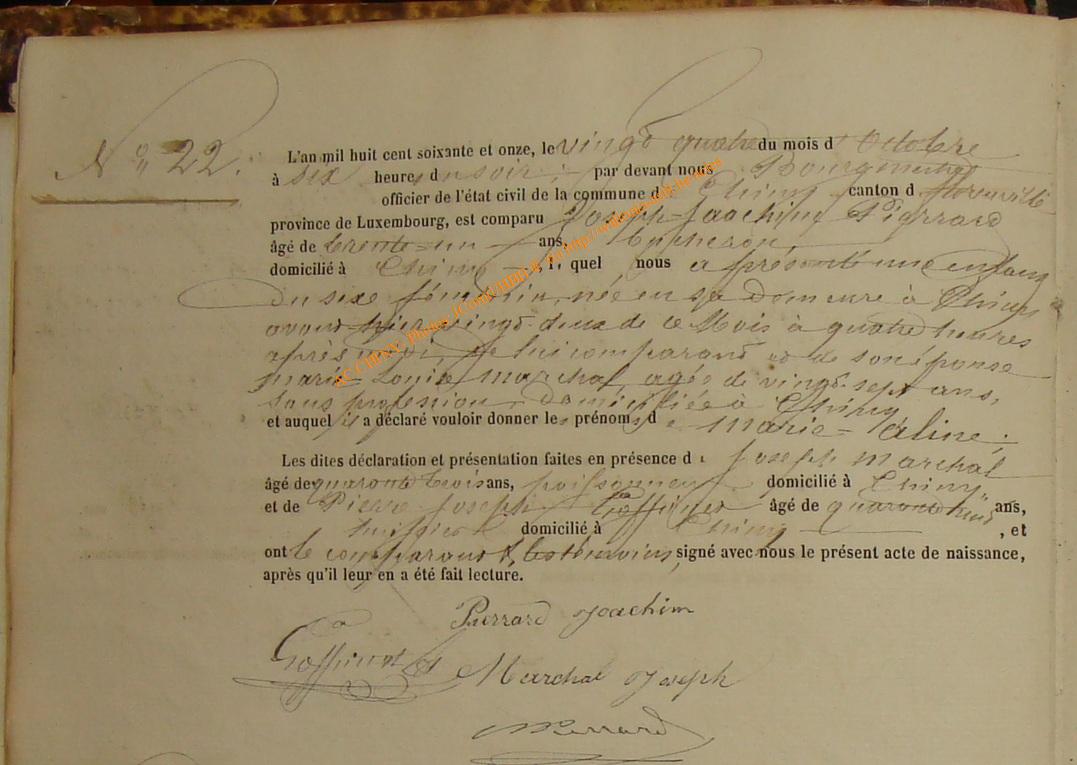 N° 22.
L'an mil huit cent soixante et onze, le vingt quatre du mois d'Octobre
à six heures du soir, par devant nous Bourgmestre
officier de l'état civil de la commune de Chiny canton de Florenville
province de Luxembourg, est comparu Joseph-Joachim Pierrard
âgé de trente-un ans,
domicilié à Chiny, lequel nous a présenté une enfant
du sexe féminin, née en sa demeure à Chiny
avant hier vingt-deux de ce Mois à quatre heures
après midi, de lui comparant et de son épouse
marie-Louise marchal, agée de vingt-sept ans,
sans profession, domiciliée à Chiny
et auquel il a déclaré vouloir donner les prénoms de marie-Céline.
Les dites déclaration et présentation faites en présence de Joseph marchal
âgé de quarante trois ans, domicilié à Chiny
et de Pierre Joseph Goffinet âgé de quarante huit ans,
domicilié à Chiny, et
ont le comparant & les témoins, signé avec nous le présent acte de naissance,
après qu'il leur en a été fait lecture.
Pierrard Joachim
Goffinet
Marchal Joseph
Pierrard